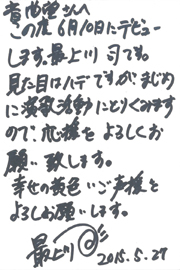 この度6月10日にデビュー
します。最上川 司です。
見た目はハデですが、まじめ
に演歌活動にとりくみます
ので、応援を よろしくお
願い致します。
幸せの黄色いご声援を
よろしくお願いします。
最上川
2015.5.27